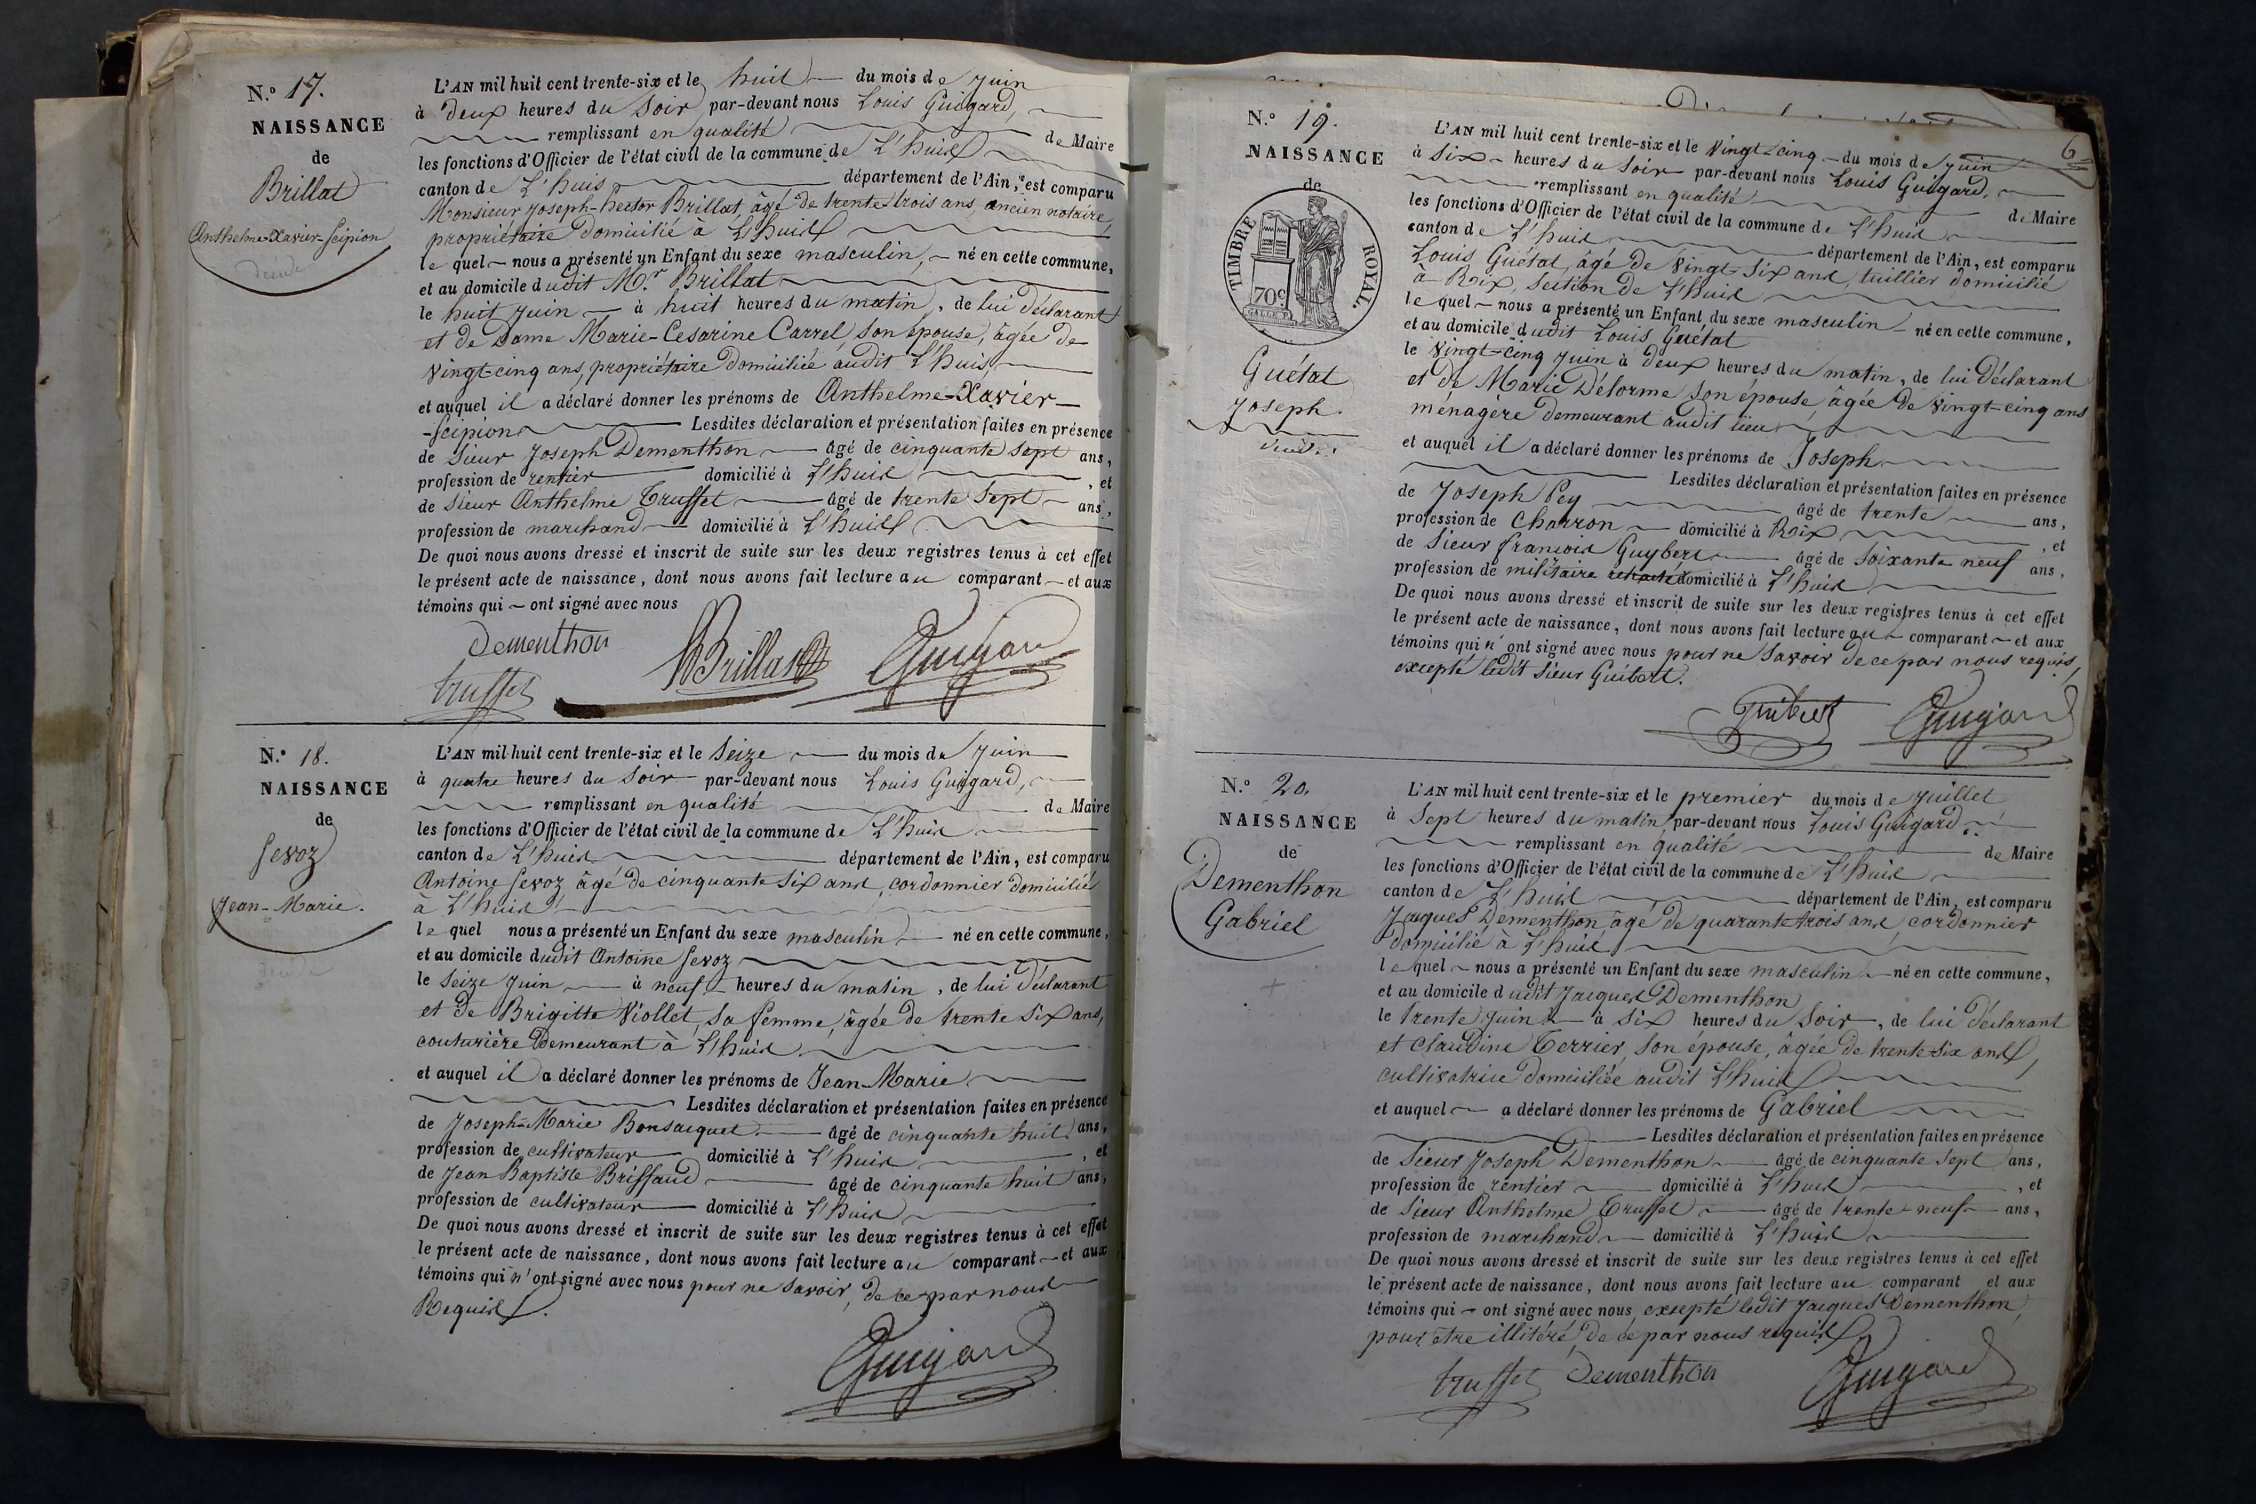 N.° 17.
NAISSANCE
de
Brillat
Anthelme-Xavier-Scipion
décédé
L'AN mil huit cent trente-six et le huit du mois de Juin
à deux heures du Soir par-devant nous Louis Guigard,
remplissant en qualité de Maire
les fonctions d'Officier de l'état civil de la commune de L'huis
canton de L'huis département de l'Ain, est comparu
Monsieur Joseph-hector Brillat, âgé de trente trois ans, ancien notaire,
propriétaire domicilié à L'huis
le quel nous a présenté un Enfant du sexe masculin, né en cette commune,
et au domicile dudit Mr. Brillat
le huit Juin à huit heures du matin, de lui déclarant
et de Dame Marie-Cesarine Carrel, son épouse, âgée de
vingt-cinq ans, propriétaire domiciliée audit L'huis,
et auquel il a déclaré donner les prénoms de Anthelme-Xavier-
-Scipion Lesdites déclaration et présentation faites en présence
de Sieur Joseph Dementhon âgé de cinquante sept ans,
profession de rentier domicilié à L'huis, et
de Sieur Anthelme Truffet âgé de trente Sept ans,
profession de marchand domicilié à L'huis
De quoi nous avons dressé et inscrit de suite sur les deux registres tenus à cet effet
le présent acte de naissance, dont nous avons fait lecture au comparant et aux
témoins qui ont signé avec nous
Dementhon
hBrillat
Guigard
truffet
N.° 18.
NAISSANCE
de
Sevoz
Jean-Marie.
L'AN mil huit cent trente-six et le Seize du mois de Juin
à quatre heures du Soir par-devant nous Louis Guigard,
remplissant en qualité de Maire
les fonctions d'Officier de l'état civil de la commune de L'huis
canton de L'huis département de l'Ain, est comparu
Antoine Sevoz âgé de cinquante six ans, cordonnier domicilié
à L'huis
le quel nous a présenté un Enfant du sexe masculin né en cette commune,
et au domicile dudit Antoine Sevoz
le Seize Juin à neuf heures du matin, de lui déclarant
et de Brigitte Viollet, sa femme, âgée de trente six ans,
couturière demeurant à L'huis
et auquel il a déclaré donner les prénoms de Jean-Marie
Lesdites déclaration et présentation faites en présence
de Joseph-Marie Bonsacquet âgé de cinquante huit ans,
profession de cultivateur domicilié à L'huis, et
de Jean Baptiste Briffaud âgé de cinquante huit ans,
profession de cultivateur domicilié à L'huis
De quoi nous avons dressé et inscrit de suite sur les deux registres tenus à cet effet
le présent acte de naissance, dont nous avons fait lecture au comparant et aux
témoins qui n'ont signé avec nous pour ne savoir, de ce par nous
Requis.
Guigard
6
N.° 19.
NAISSANCE
de
TIMBRE ROYAL.
70c
Guétat
Joseph.
décédé
L'AN mil huit cent trente-six et le vingt-cinq du mois de Juin
à six heures du Soir par-devant nous Louis Guigard,
remplissant en qualité de Maire
les fonctions d'Officier de l'état civil de la commune de L'huis
canton de L'huis département de l'Ain, est comparu
Louis Guétat, âgé de vingt-six ans, tuillier domicilié
à Rix, section de L'huis
le quel nous a présenté un Enfant du sexe masculin né en cette commune,
et au domicile dudit Louis Guétat
le vingt-cinq Juin à deux heures du matin, de lui déclarant
et de Marie Délorme son épouse âgée de vingt-cinq ans
ménagère demeurant audit lieu
et auquel il a déclaré donner les prénoms de Joseph
Lesdites déclaration et présentation faites en présence
de Joseph Pey âgé de trente ans,
profession de charron domicilié à Rix, et
de Sieur francois Guybert âgé de Soixante neuf ans,
profession de militaire retraité domicilié à L'huis
De quoi nous avons dressé et inscrit de suite sur les deux registres tenus à cet effet
le présent acte de naissance, dont nous avons fait lecture au comparant et aux
témoins qui n'ont signé avec nous pour ne savoir de ce par nous requis,
excepté ledit Sieur Guibert.
Guibert
Guigard
N.° 20.
NAISSANCE
de
Dementhon
Gabriel
L'AN mil huit cent trente-six et le premier du mois de Juillet
à Sept heures du matin par-devant nous Louis Guigard,
remplissant en qualité de Maire
les fonctions d'Officier de l'état civil de la commune de L'huis
canton de L'huis département de l'Ain, est comparu
Jacques Dementhon, âgé de quarante trois ans, cordonnier
domicilié à L'huis
le quel nous a présenté un Enfant du sexe masculin né en cette commune,
et au domicile dudit Jacques Dementhon
le trente Juin à six heures du Soir, de lui déclarant
et claudine Terrier, son épouse, âgée de trente-six ans,
cultivatrice domiciliée audit L'huis
et auquel a déclaré donner les prénoms de Gabriel
Lesdites déclaration et présentation faites en présence
de Sieur Joseph Dementhon âgé de cinquante sept ans,
profession de rentier domicilié à L'huis, et
de Sieur Anthelme Truffet âgé de trente neuf ans,
profession de marchand domicilié à L'huis
De quoi nous avons dressé et inscrit de suite sur les deux registres tenus à cet effet
le présent acte de naissance, dont nous avons fait lecture au comparant et aux
témoins qui ont signé avec nous, excepté ledit Jacques Dementhon,
pour être illitéré, de ce par nous requis
truffet
Dementhon
Guigard